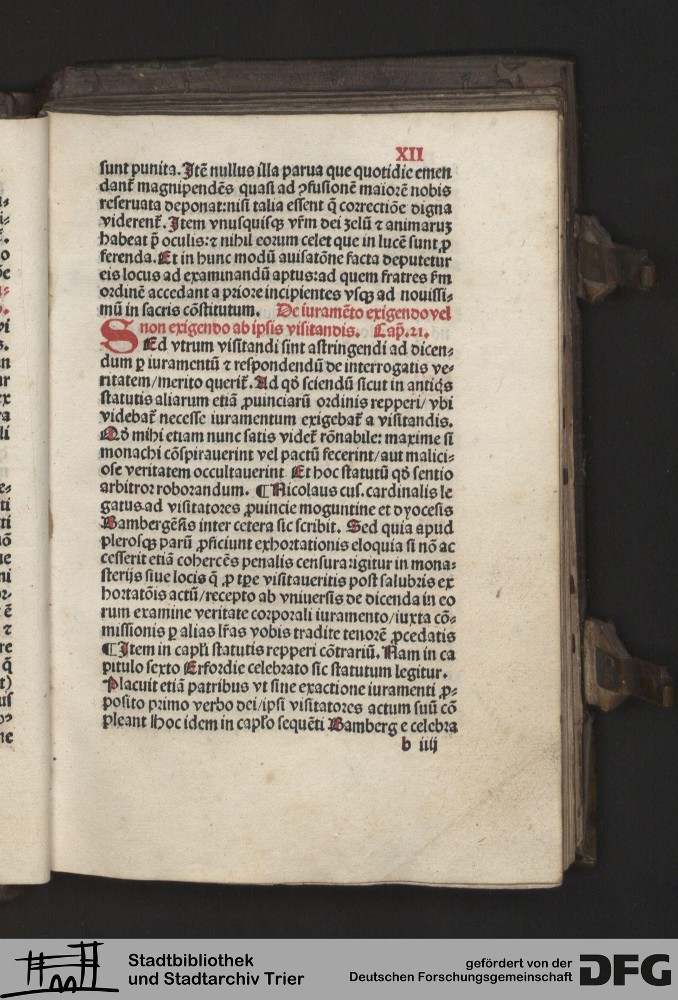 XII
sunt punita. Itē nullus illa parua que quotidie emen
dant᷑ magnipendēs quasi ad ꝯfusionē maiorē nobis
reseruata deponat: nisi talia essent q̄ correctiōe digna
viderent᷑. Item vnusquisqꝫ vr̄m dei zelū ⁊ animaruꝫ
habeat p̄ oculis: ⁊ nihil eorum celet que in lucē sunt ꝓ
ferenda. Et in hunc modū auisatōne facta deputetur
eis locus ad examinandū aptus: ad quem fratres ẜm
ordinē accedant a priore incipientes vsqꝫ ad nouissi⸗
mū in sacris cōstitutum. De iuramēto exigendo vel
non exigendo ab ipsis visitandis. Cap̄. 21.
SEd vtrum visitandi sint astringendi ad dicen⸗
dum ꝑ iuramentū ⁊ respondendū de interrogatis ve⸗
ritatem/merito querit᷑. Ad qd̄ sciendū sicut in antiq̄s
statutis aliarum etiā ꝓuinciarū ordinis repperi/vbi
videbat᷑ necesse iuramentum exigebat᷑ a visitandis.
Qd̄ mihi etiam nunc satis videt᷑ rōnabile: maxime si
monachi cōspirauerint vel pactū fecerint/aut malici⸗
ose veritatem occultauerint Et hoc statutū qd̄ sentio
arbitror roborandum. ¶ Nicolaus cus. cardinalis le
gatus ad visitatores ꝓuincie moguntine et dyocesis
Bambergēsis inter cetera sic scribit. Sed quia apud
plerosqꝫ parū ꝓficiunt exhortationis eloquia si nō ac
cesserit etiā cohercēs penalis censura rigitur in mona⸗
sterijs siue locis q̄ ꝓ tꝑe visitaueritis post salubris ex
hortatōis actū/recepto ab vniuersis de dicenda in eo
rum examine veritate corporali iuramento/iuxta cō⸗
missionis ꝑ alias lr̄as vobis tradite tenorē ꝓcedatis
¶ Item in capl̄i statutis repperi cōtrariū. Nam in ca
pitulo sexto Erfordie celebrato sic statutum legitur.
Placuit etiā patribus vt sine exactione iuramenti ꝓ⸗
posito primo verbo dei/ipsi visitatores actum suū cō
pleant Hoc idem in capl̄o sequēti Bamberg e celebra
b iiij
Stadtbibliothek
und Stadtarchiv Trier
gefördert von der
Deutschen Forschungsgemeinschaft
DFG